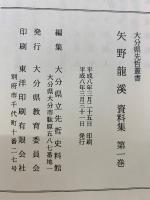 大分県先哲叢書
矢野龍溪 資料集 第一巻
平成八年三月二十五日 印刷
平成八年三月三十一日 発行
編集 大分県立先哲史料館
大分市大字駄原五八七番地一
発行 大分県教育委員会
印刷 東洋印刷有限会社
別府市千代町十番二七号